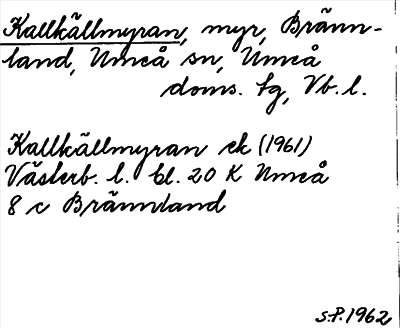 Kallkällmyran, myr, Bränn-
land, Umeå sn, Umeå
doms. tg, Vb. l.
Kallkällmyran ek (1961)
Västerb. l. bl. 20 K Umeå
8 c Brännland
S.P. 1962